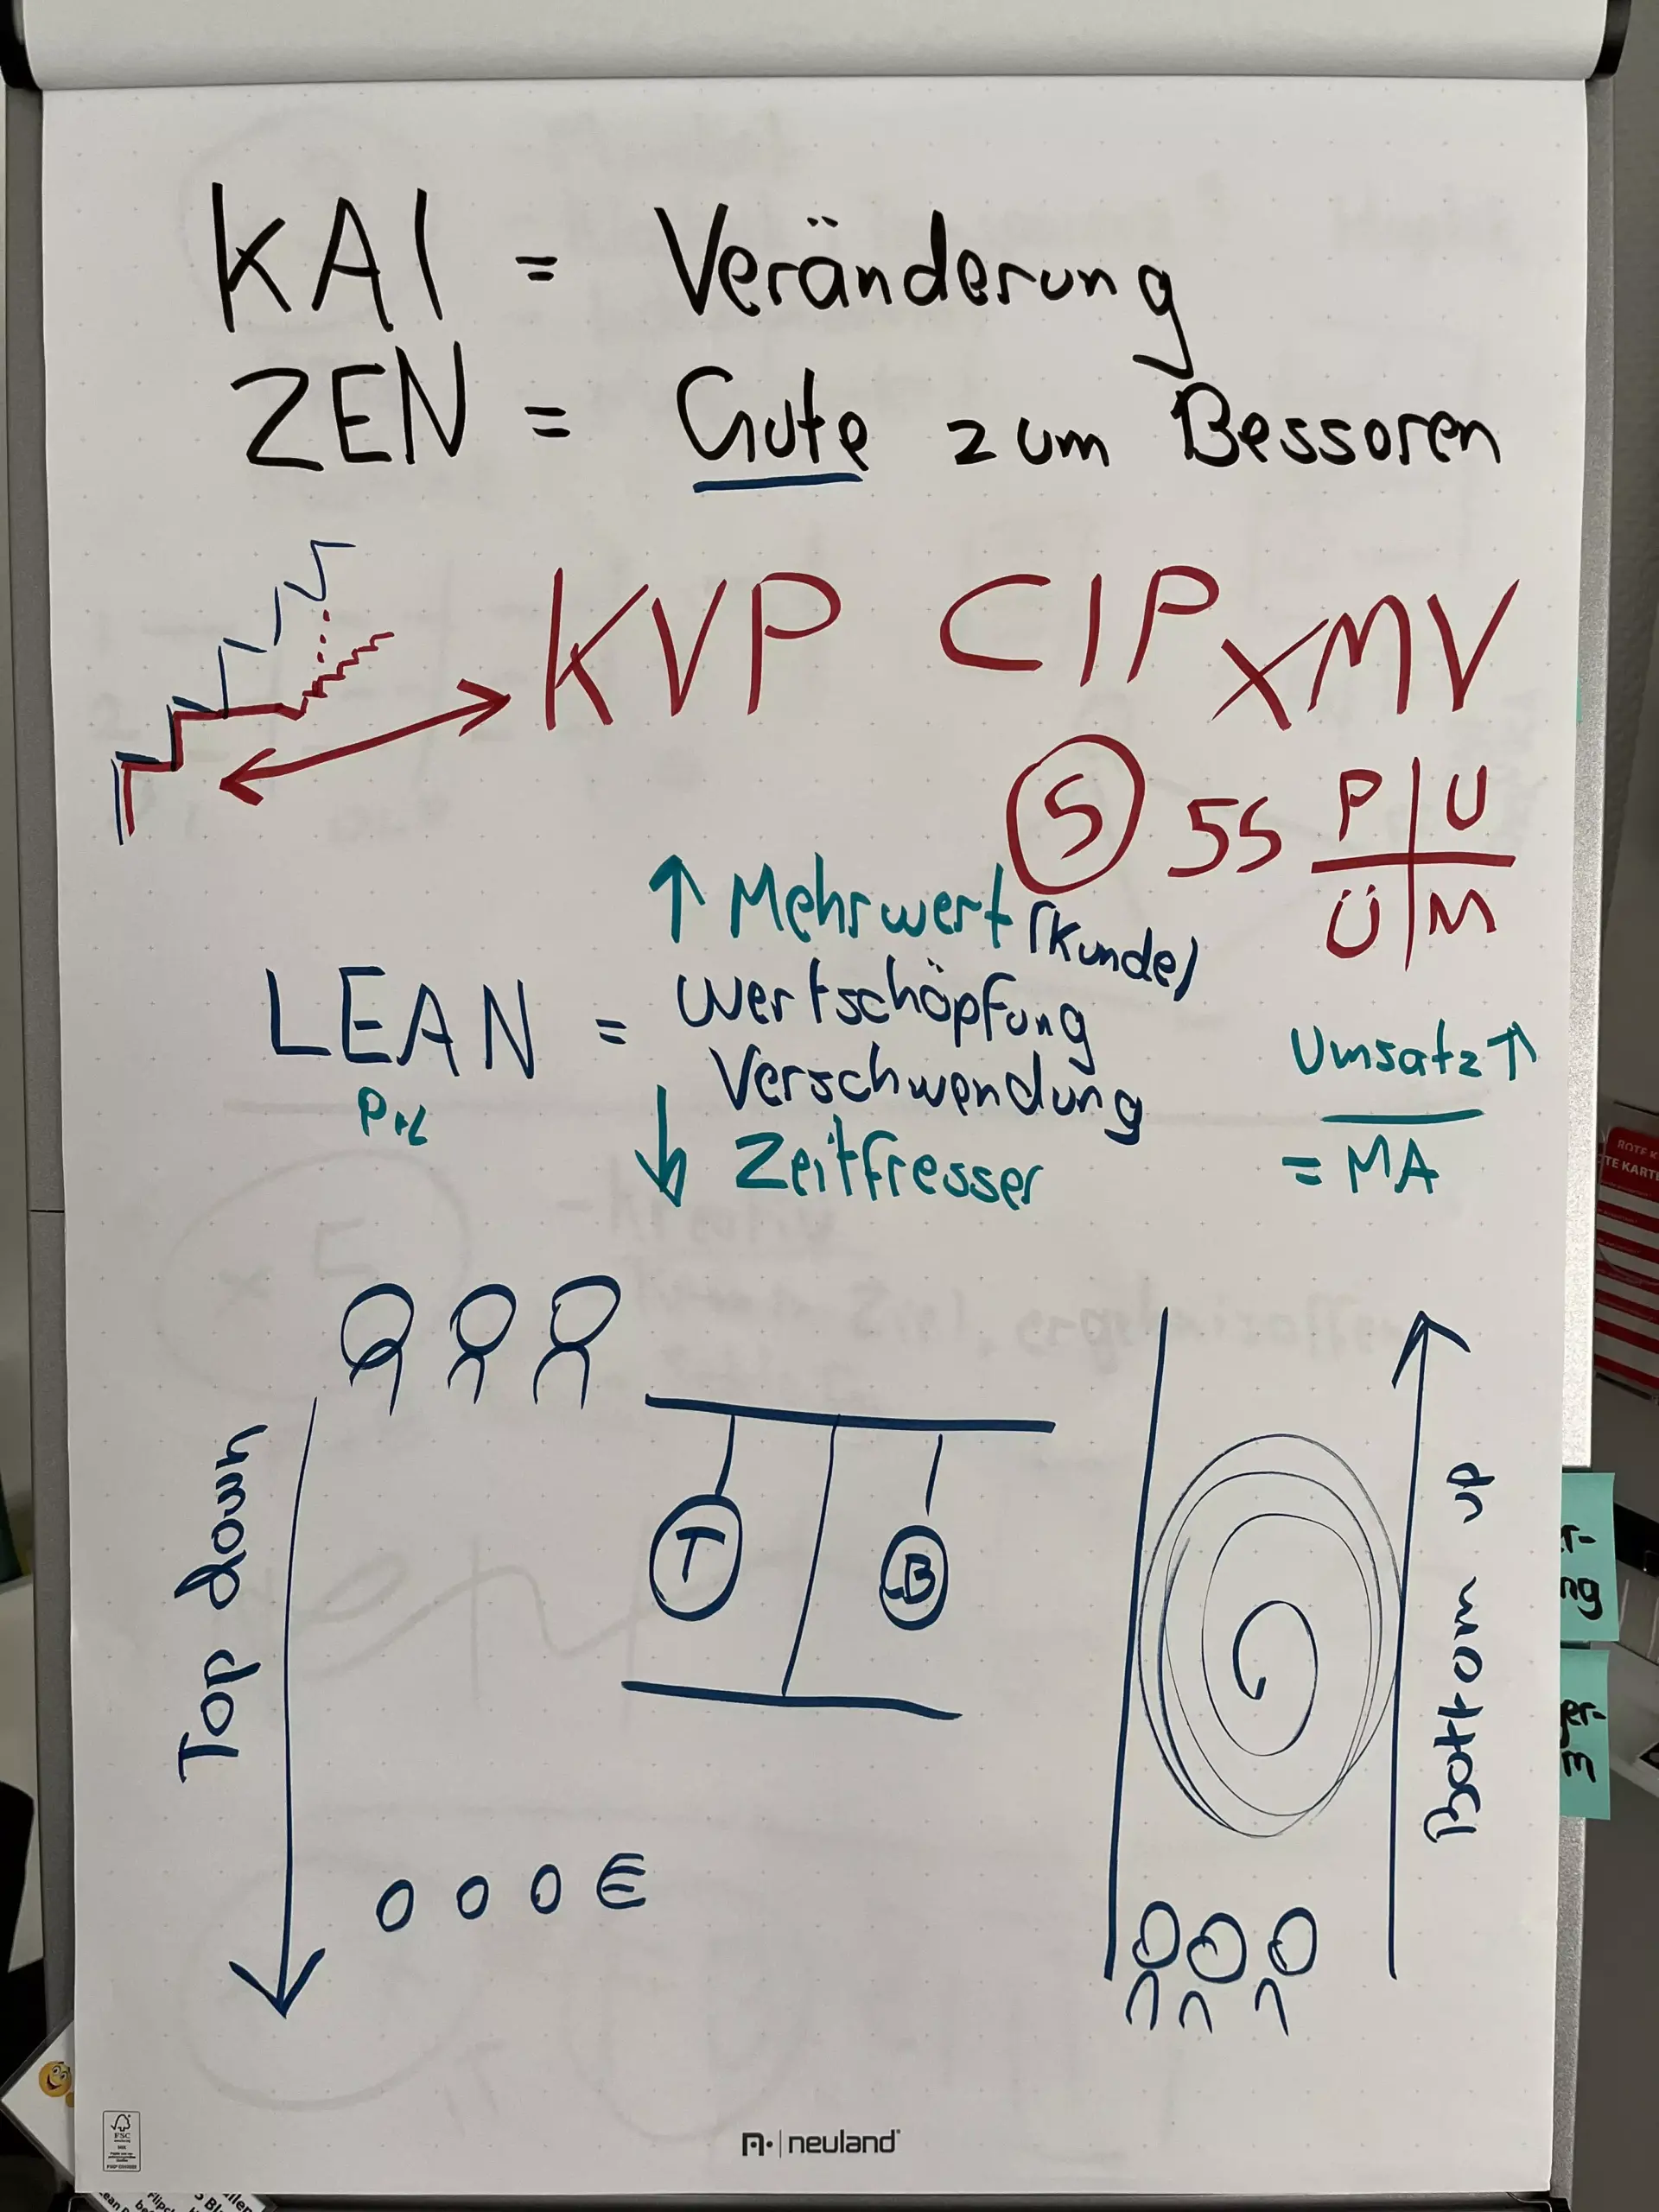 KAI = Veränderung
ZEN = Gute zum Besseren
KVP CIP xMV
5 5S P U
Ü M
↑ Mehrwert (Kunde)
LEAN = Wertschöpfung
Verschwendung
↓ Zeitfresser
Umsatz ↑
= MA
Top down
T B
Bottom up
000€
neuland
FSC
ROTE K
TE KARTE